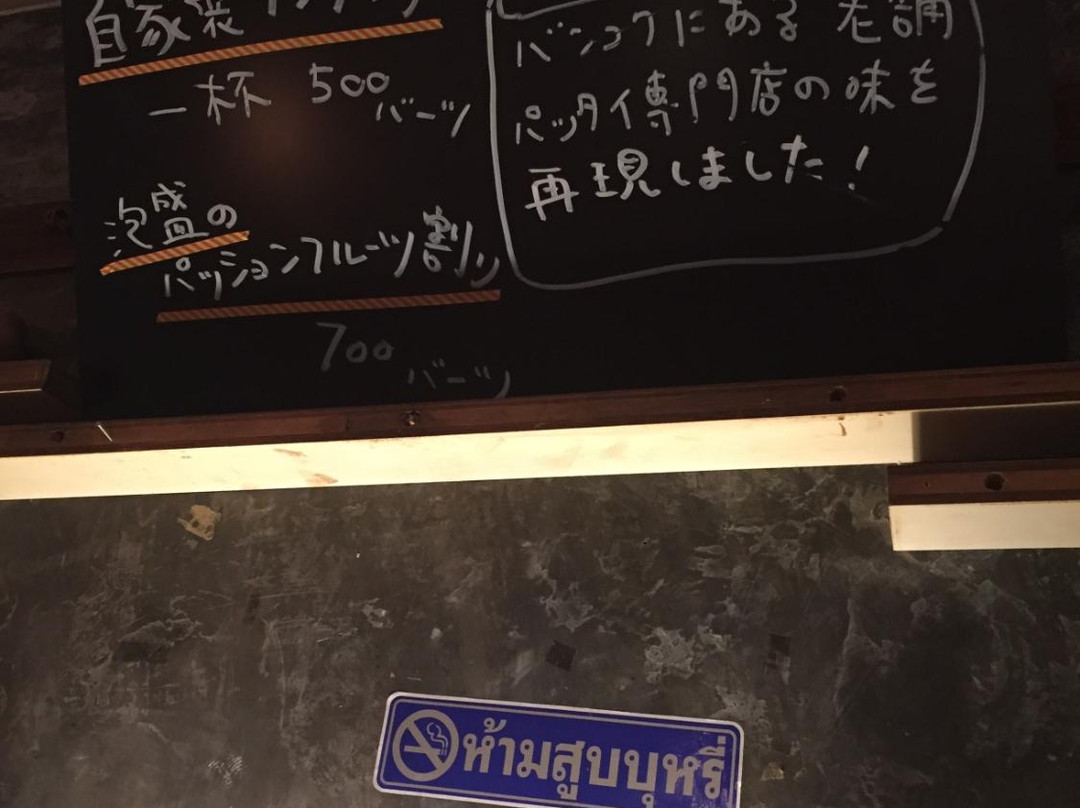 自家製
一杯 500
バーツ
泡盛の
パッションフルーツ割り
700
バーツ
バンコクにある老舗
パッタイ専門店の味を
再現しました!
ห้ามสูบบุหรี่